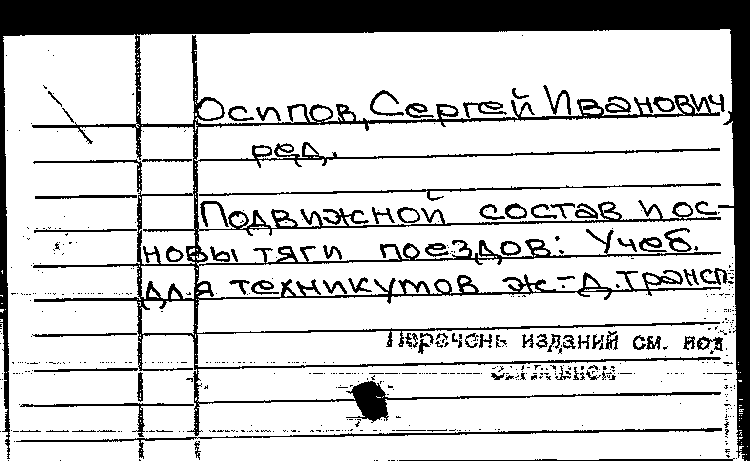 Осипов, Сергей Иванович,
ред.
Подвижной состав и ос-
новы тяги поездов: Учеб.
для техникумов ж.-д. трансп.
Перечень изданий см. под
заглавием